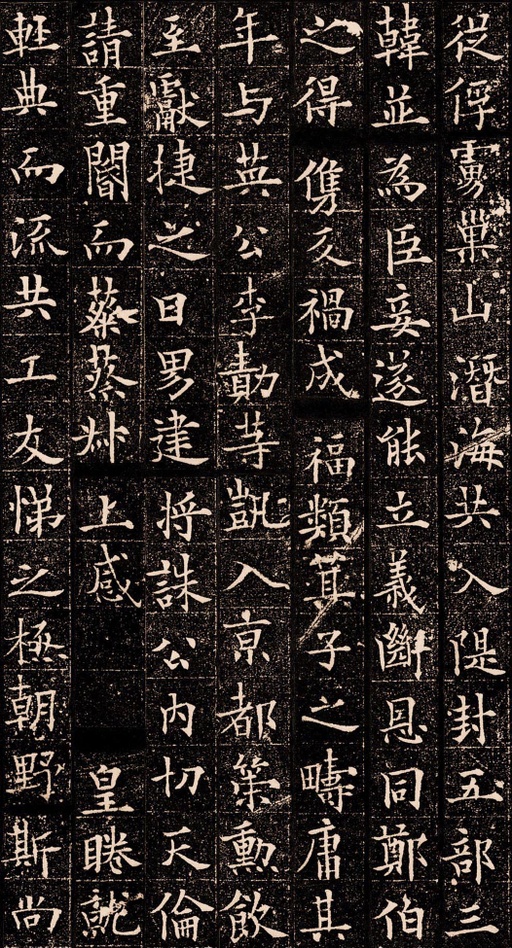 從俘虜巢山潛海共入隄封五部三
韓並為臣妾遂能立義斷恩同鄭伯
之得儁反禍成福類箕子之疇庸其
年与英公李勣等凱入京都策勳飲
至獻捷之日男建將誅公内切天倫
請重閽而蔡蔡叔上感 皇睠就
輕典而流共工友悌之極朝野斯尚